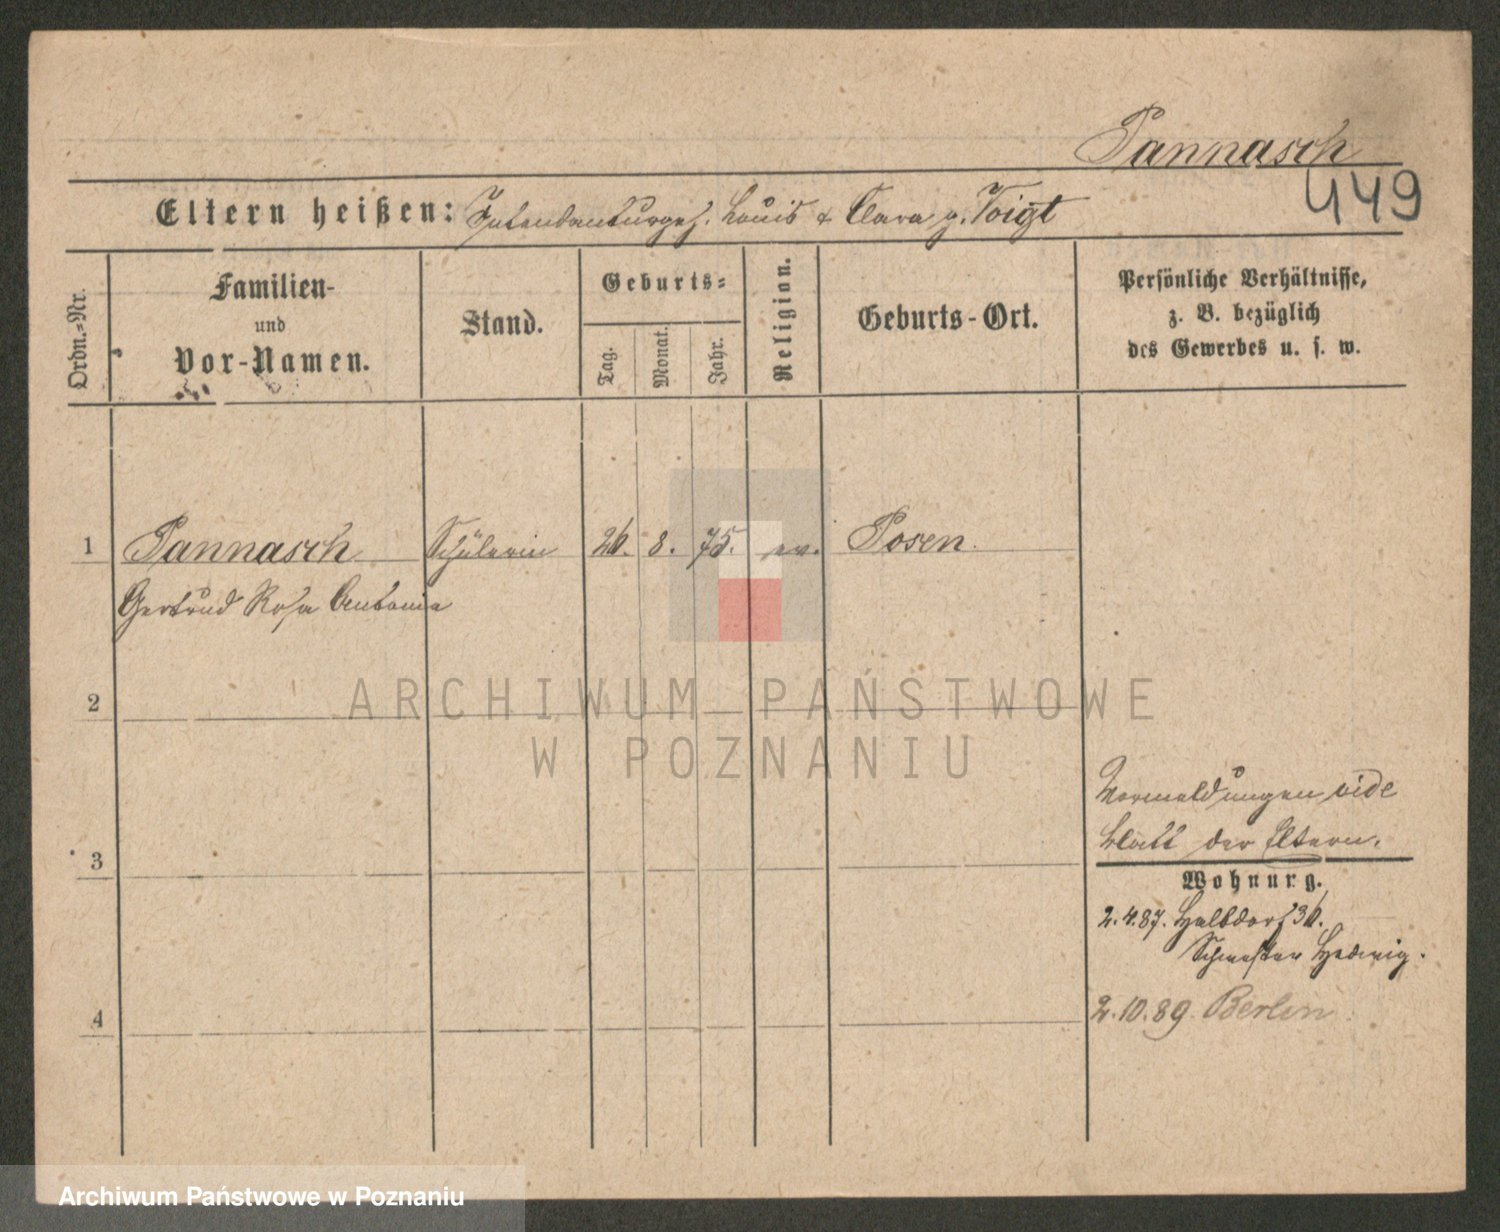 Pannasch
449
Eltern heißen: Intendanturges. Louis & Clara g. Voigt
Ordn.-Nr.
Familien- und Vor-Namen.
Stand.
Geburts-
Tag.
Monat.
Jahr.
Religion.
Geburts-Ort.
Persönliche Verhältnisse,
z. B. bezüglich
des Gewerbes u. s. w.
1 Pannasch Schülerin 26. 8. 75. ev. Posen.
Gertrud Rosa Antonie
2
ARCHIWUM PAŃSTWOWE
W POZNANIU
Vormeldungen vide
Blatt der Eltern.
3
Wohnung.
2.4.87. Halbdorf 36.
Schwester Hedwig.
4
2.10.89. Berlin.
Archiwum Państwowe w Poznaniu